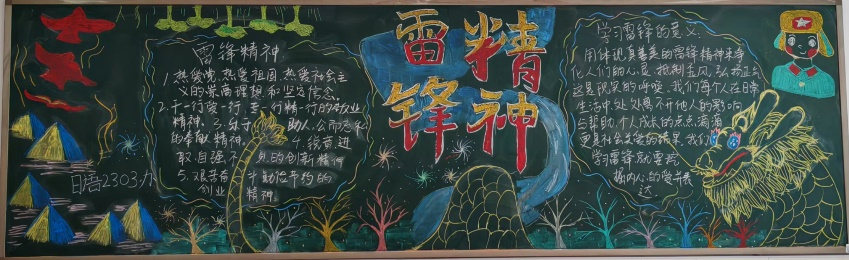 雷锋精神
1.热爱党,热爱祖国,热爱社会主
义的崇高理想和坚定信念。
2.干一行爱一行,专一行精一行的敬业
精神. 3.乐于助人,公而忘私
的奉献精神. 4.锐意进
取自强不息的创新精神
5.艰苦奋斗勤俭节约的
创业精神
日语2303办
雷锋
精神
学习雷锋的意义
用体现真善美的雷锋精神来净
化人们的心灵,抵制歪风,弘扬正气
这是现实的呼唤,我们每个人在日常
生活中处处离不开他人的影响
与帮助.个人成长的点点滴滴
更是社会关爱的结果.我们
学习雷锋就要将
内心的爱
达